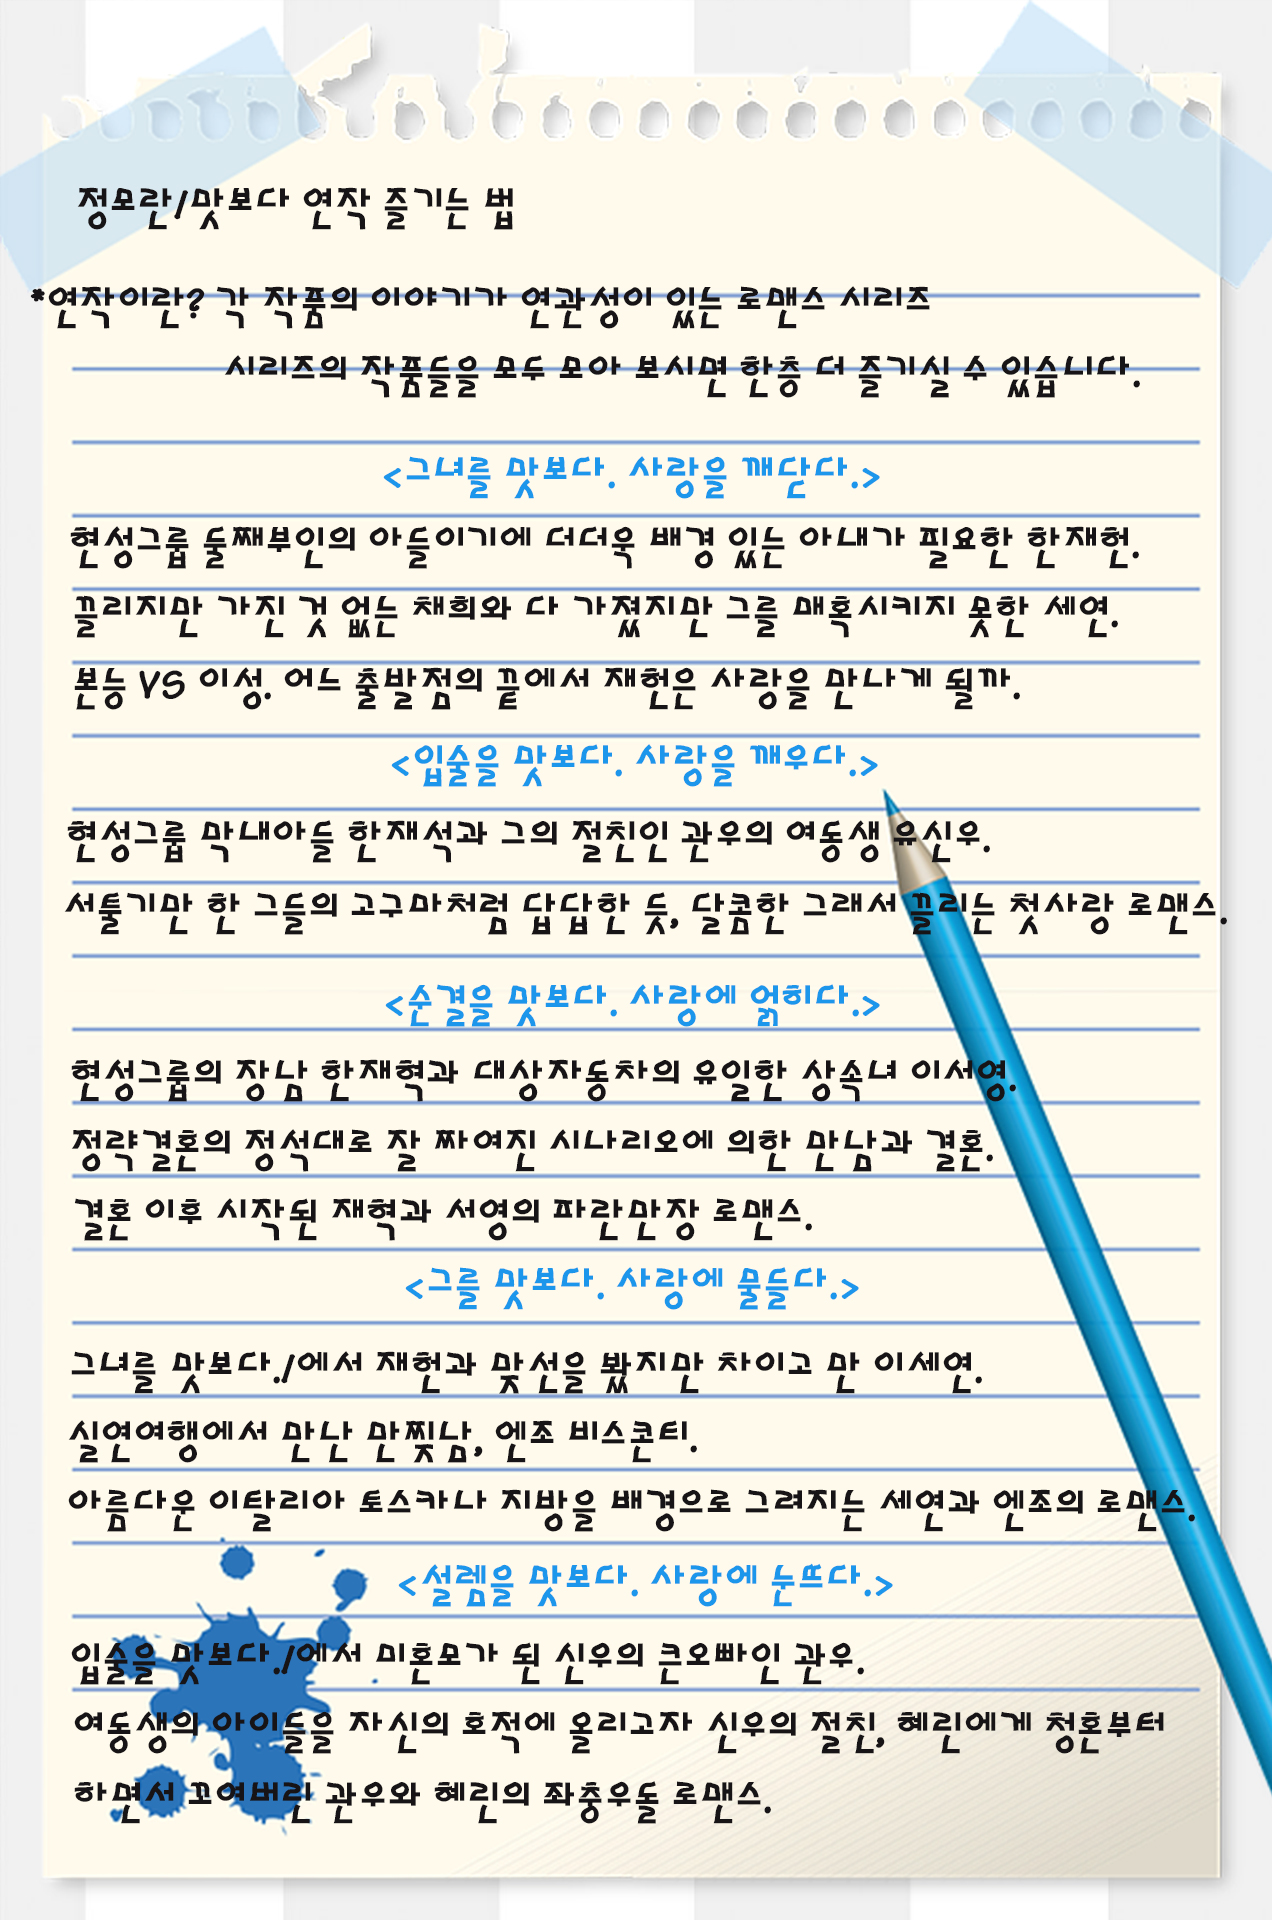 정모란/맛보다 연작 즐기는 법
*연작이란? 각 작품의 이야기가 연관성이 있는 로맨스 시리즈
시리즈의 작품들을 모두 모아 보시면 한층 더 즐기실 수 있습니다.
<그녀를 맛보다. 사랑을 깨닫다.>
현성그룹 둘째부인의 아들이기에 더더욱 배경 있는 아내가 필요한 한재헌.
끌리지만 가진 것 없는 채희와 다 가졌지만 그를 매혹시키지 못한 세연.
본능 VS 이성. 어느 출발점의 끝에서 재헌은 사랑을 만나게 될까.
<입술을 맛보다. 사랑을 깨우다.>
현성그룹 막내아들 한재석과 그의 절친인 관우의 여동생 유신우.
서툴기만 한 그들의 고구마처럼 답답한 듯, 달콤한 그래서 끌리는 첫사랑 로맨스.
<순결을 맛보다. 사랑에 얽히다.>
현성그룹의 장남 한재혁과 대상자동차의 유일한 상속녀 이서영.
정략결혼의 정석대로 잘 짜여진 시나리오에 의한 만남과 결혼.
결혼 이후 시작된 재혁과 서영의 파란만장 로맨스.
<그를 맛보다. 사랑에 물들다.>
그녀를 맛보다./에서 재헌과 맞선을 봤지만 차이고 만 이세연.
실연여행에서 만난 만찢남, 엔조 비스콘티.
아름다운 이탈리아 토스카나 지방을 배경으로 그려지는 세연과 엔조의 로맨스.
<설렘을 맛보다. 사랑에 눈뜨다.>
입술을 맛보다./에서 미혼모가 된 신우의 큰오빠인 관우.
여동생의 아이들을 자신의 호적에 올리고자 신우의 절친, 혜린에게 청혼부터
하면서 꼬여버린 관우와 혜린의 좌충우돌 로맨스.